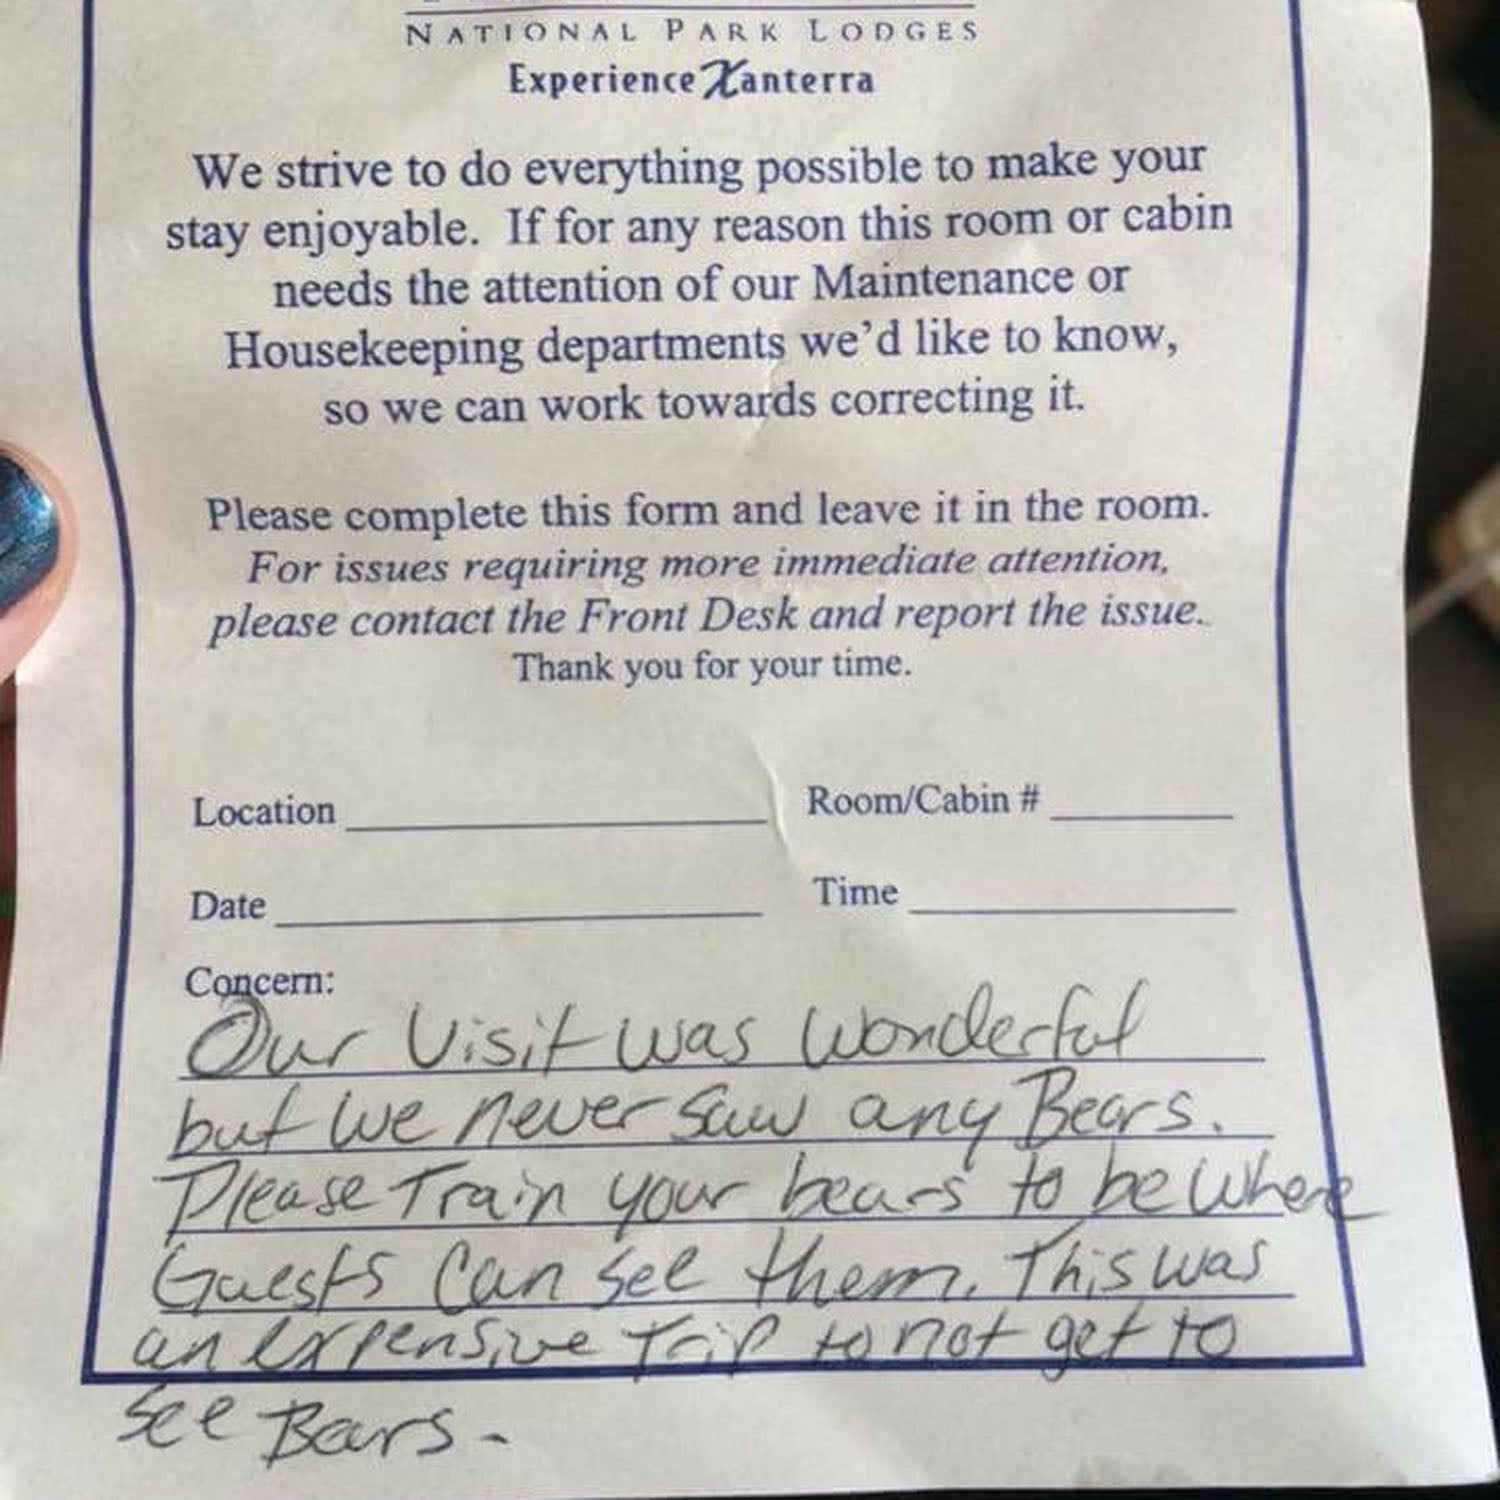 NATIONAL PARK LODGES
Experience Xanterra
We strive to do everything possible to make your
stay enjoyable. If for any reason this room or cabin
needs the attention of our Maintenance or
Housekeeping departments we'd like to know,
so we can work towards correcting it.
Please complete this form and leave it in the room.
For issues requiring more immediate attention,
please contact the Front Desk and report the issue.
Thank you for your time.
Location Room/Cabin #
Date Time
Concern:
Our Visit was wonderful
but we never saw any Bears.
Please Train your bears to be where
Guests can see them. This was
an expensive Trip to not get to
see Bears.